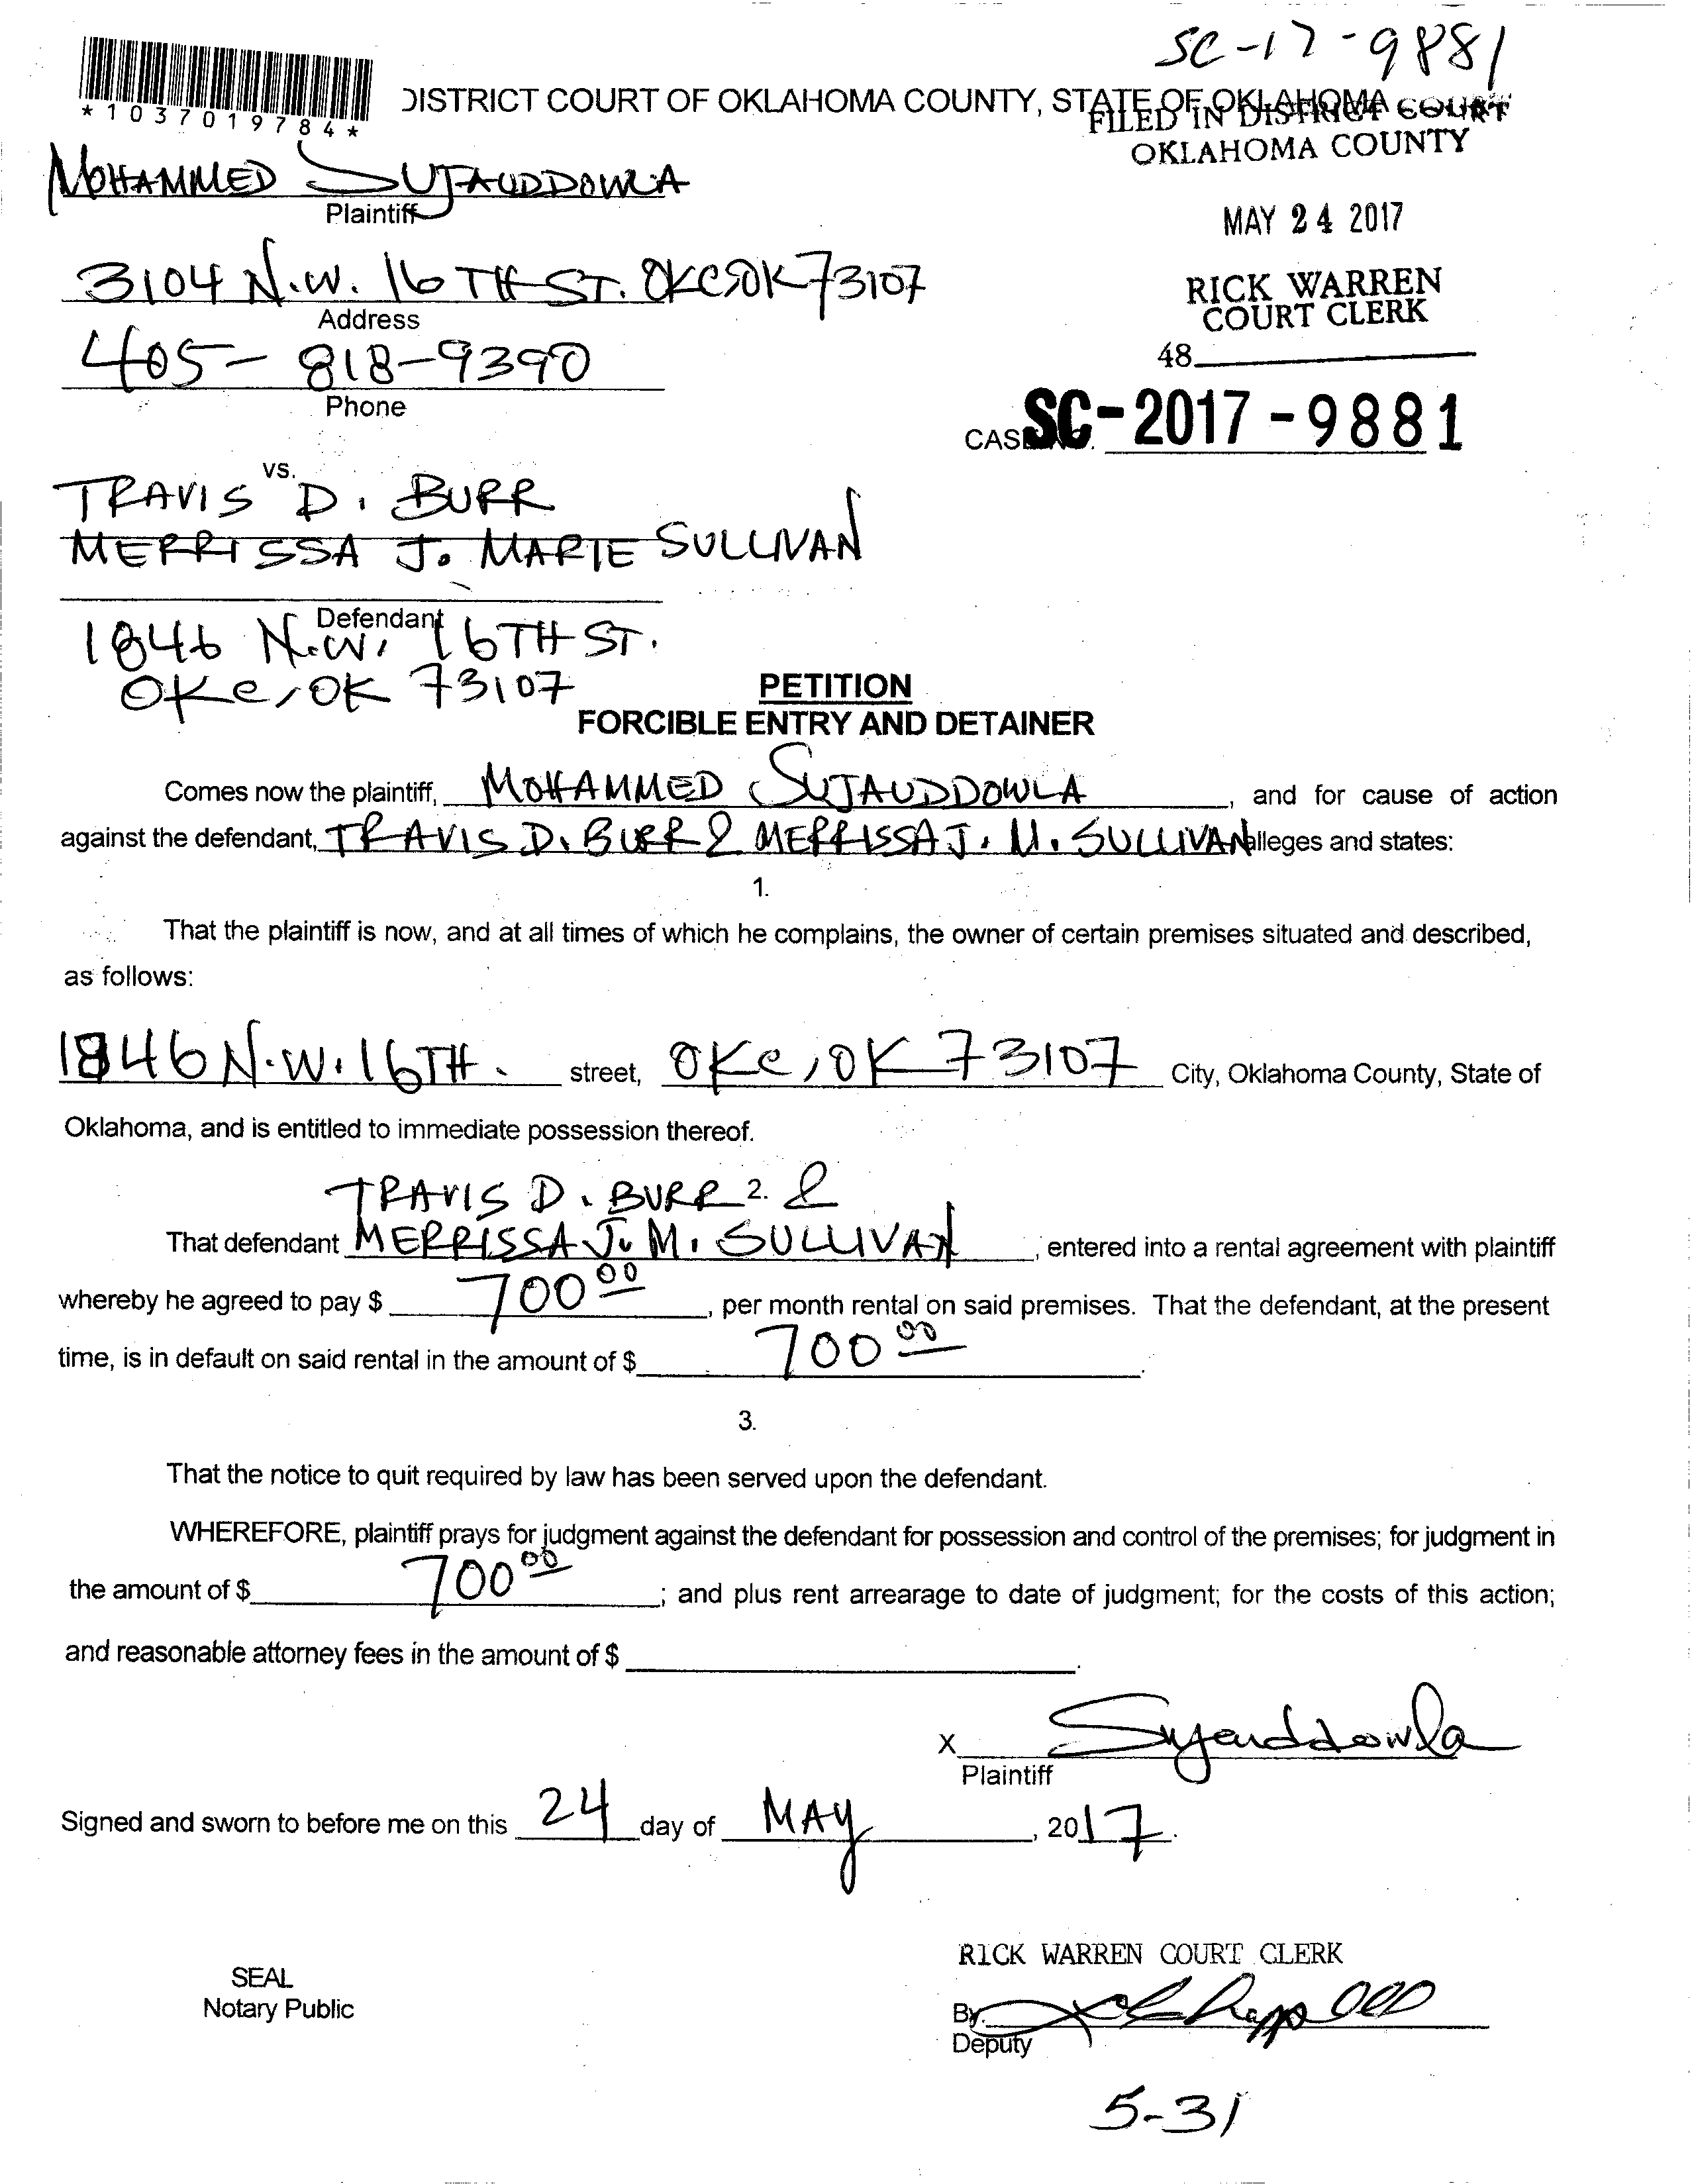 SC-17-9881
*1037019784*
DISTRICT COURT OF OKLAHOMA COUNTY, STATE OF OKLAHOMA
FILED IN DISTRICT COURT
OKLAHOMA COUNTY
MOHAMMED SUJAUDDOWLA
Plaintiff
MAY 24 2017
3104 N.W. 16TH ST. OKC, OK 73107
Address
RICK WARREN
COURT CLERK
405-818-9390
Phone
48
CAS SC-2017-9881
vs.
TRAVIS D. BURR
MERRISSA J. MARIE SULLIVAN
Defendant
1846 N.W. 16TH ST.
OKC, OK 73107
PETITION
FORCIBLE ENTRY AND DETAINER
Comes now the plaintiff, MOHAMMED SUJAUDDOWLA, and for cause of action
against the defendant, TRAVIS D. BURR & MERRISSA J. M. SULLIVAN alleges and states:
1.
That the plaintiff is now, and at all times of which he complains, the owner of certain premises situated and described,
as follows:
1846 N.W. 16TH. street, OKC, OK 73107 City, Oklahoma County, State of
Oklahoma, and is entitled to immediate possession thereof.
2.
TRAVIS D. BURR &
That defendant MERRISSA J. M. SULLIVAN, entered into a rental agreement with plaintiff
whereby he agreed to pay $ 700 00, per month rental on said premises. That the defendant, at the present
time, is in default on said rental in the amount of $ 700 00.
3.
That the notice to quit required by law has been served upon the defendant.
WHEREFORE, plaintiff prays for judgment against the defendant for possession and control of the premises; for judgment in
the amount of $ 700 00; and plus rent arrearage to date of judgment; for the costs of this action;
and reasonable attorney fees in the amount of $ .
X Sujauddowla
Plaintiff
Signed and sworn to before me on this 24 day of MAY, 2017.
RICK WARREN COURT CLERK
SEAL
Notary Public
By
Deputy
5-31